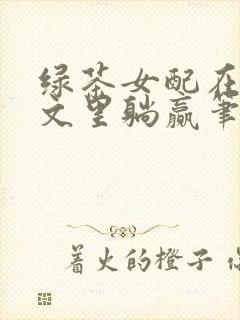 绿茶女配在
文里躺赢筆
着火的橙子